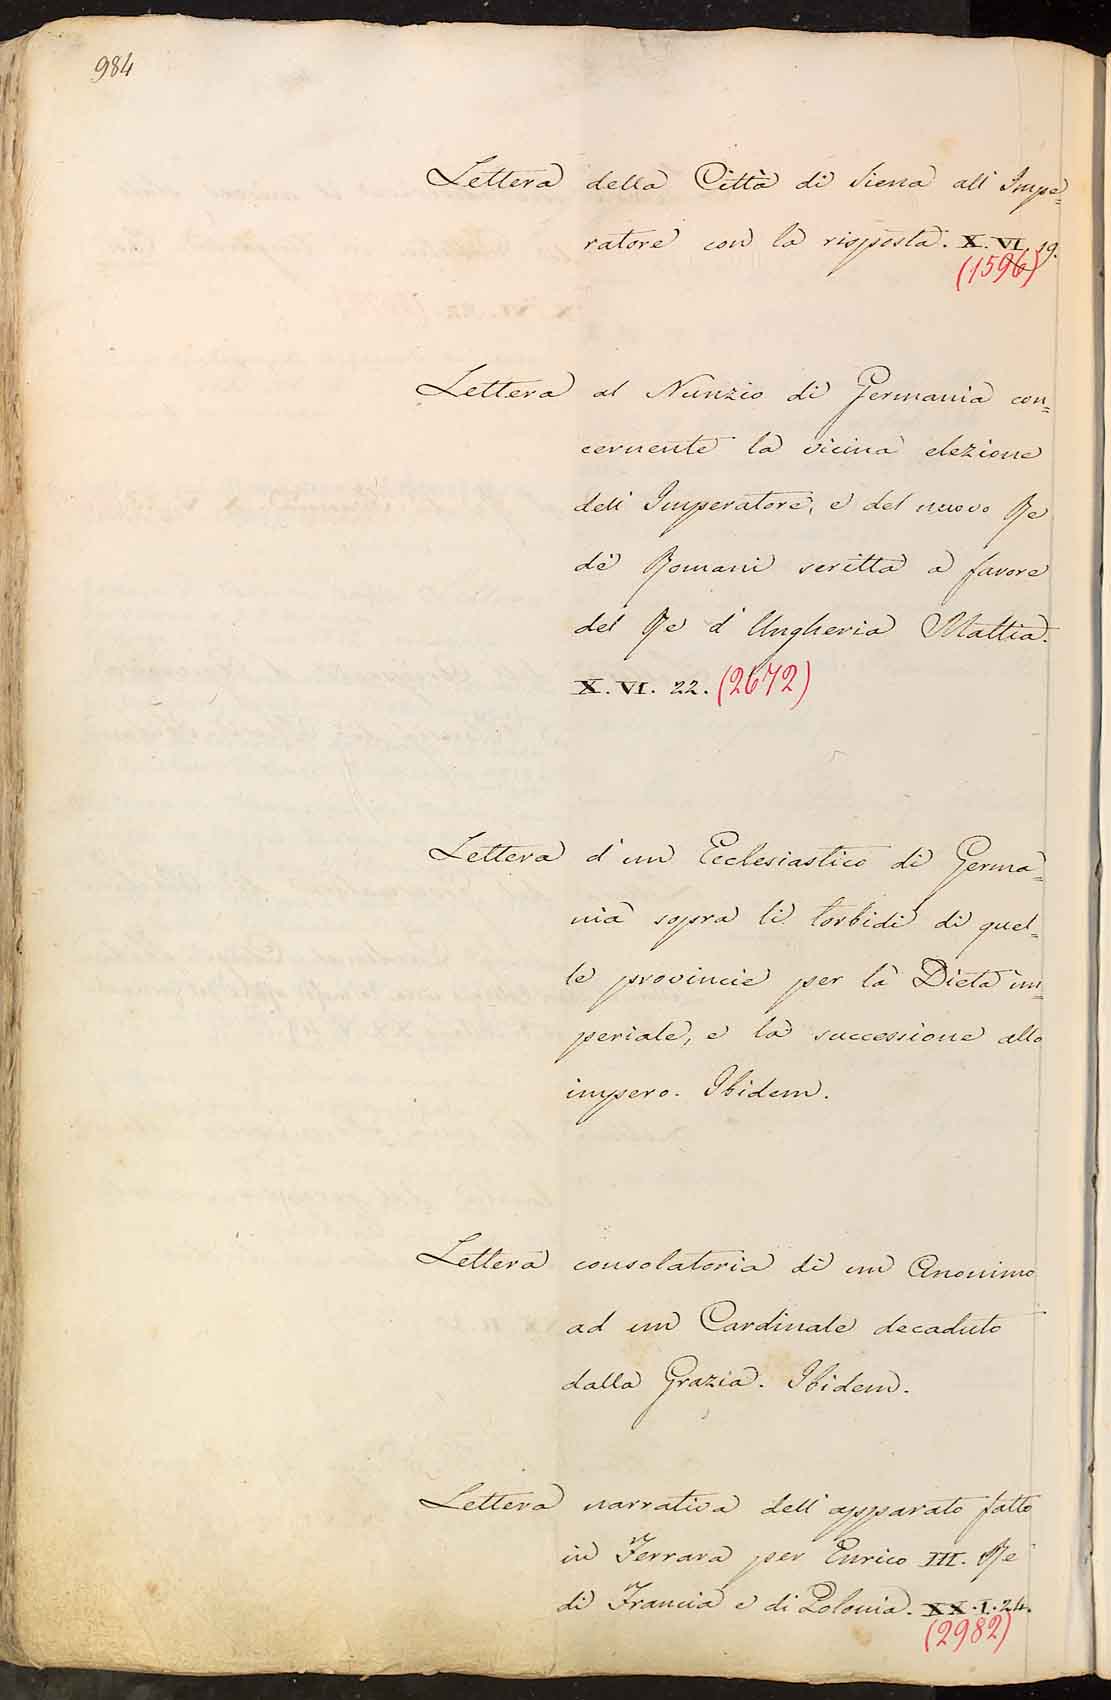 984
Lettera della Città di Siena all' Impe=
ratore con la risposta. X. VI. 19.
(1596)
Lettera al Nunzio di Germania con=
cernente la vicina elezione
dell' Imperatore, e del nuovo Re
de' Romani scritta a favore
del Re d' Ungheria Mattia.
X. VI. 22. (2672)
Lettera d' un Ecclesiastico di Germa=
nia sopra li torbidi di quel=
le provincie per la Dieta im=
periale, e la successione allo
impero. Ibidem.
Lettera consolatoria di un Anonimo
ad un Cardinale decaduto
dalla Grazia. Ibidem.
Lettera narrativa dell' apparato fatto
in Ferrara per Enrico III. Re
di Francia e di Polonia. XX. I. 24.
(2982)